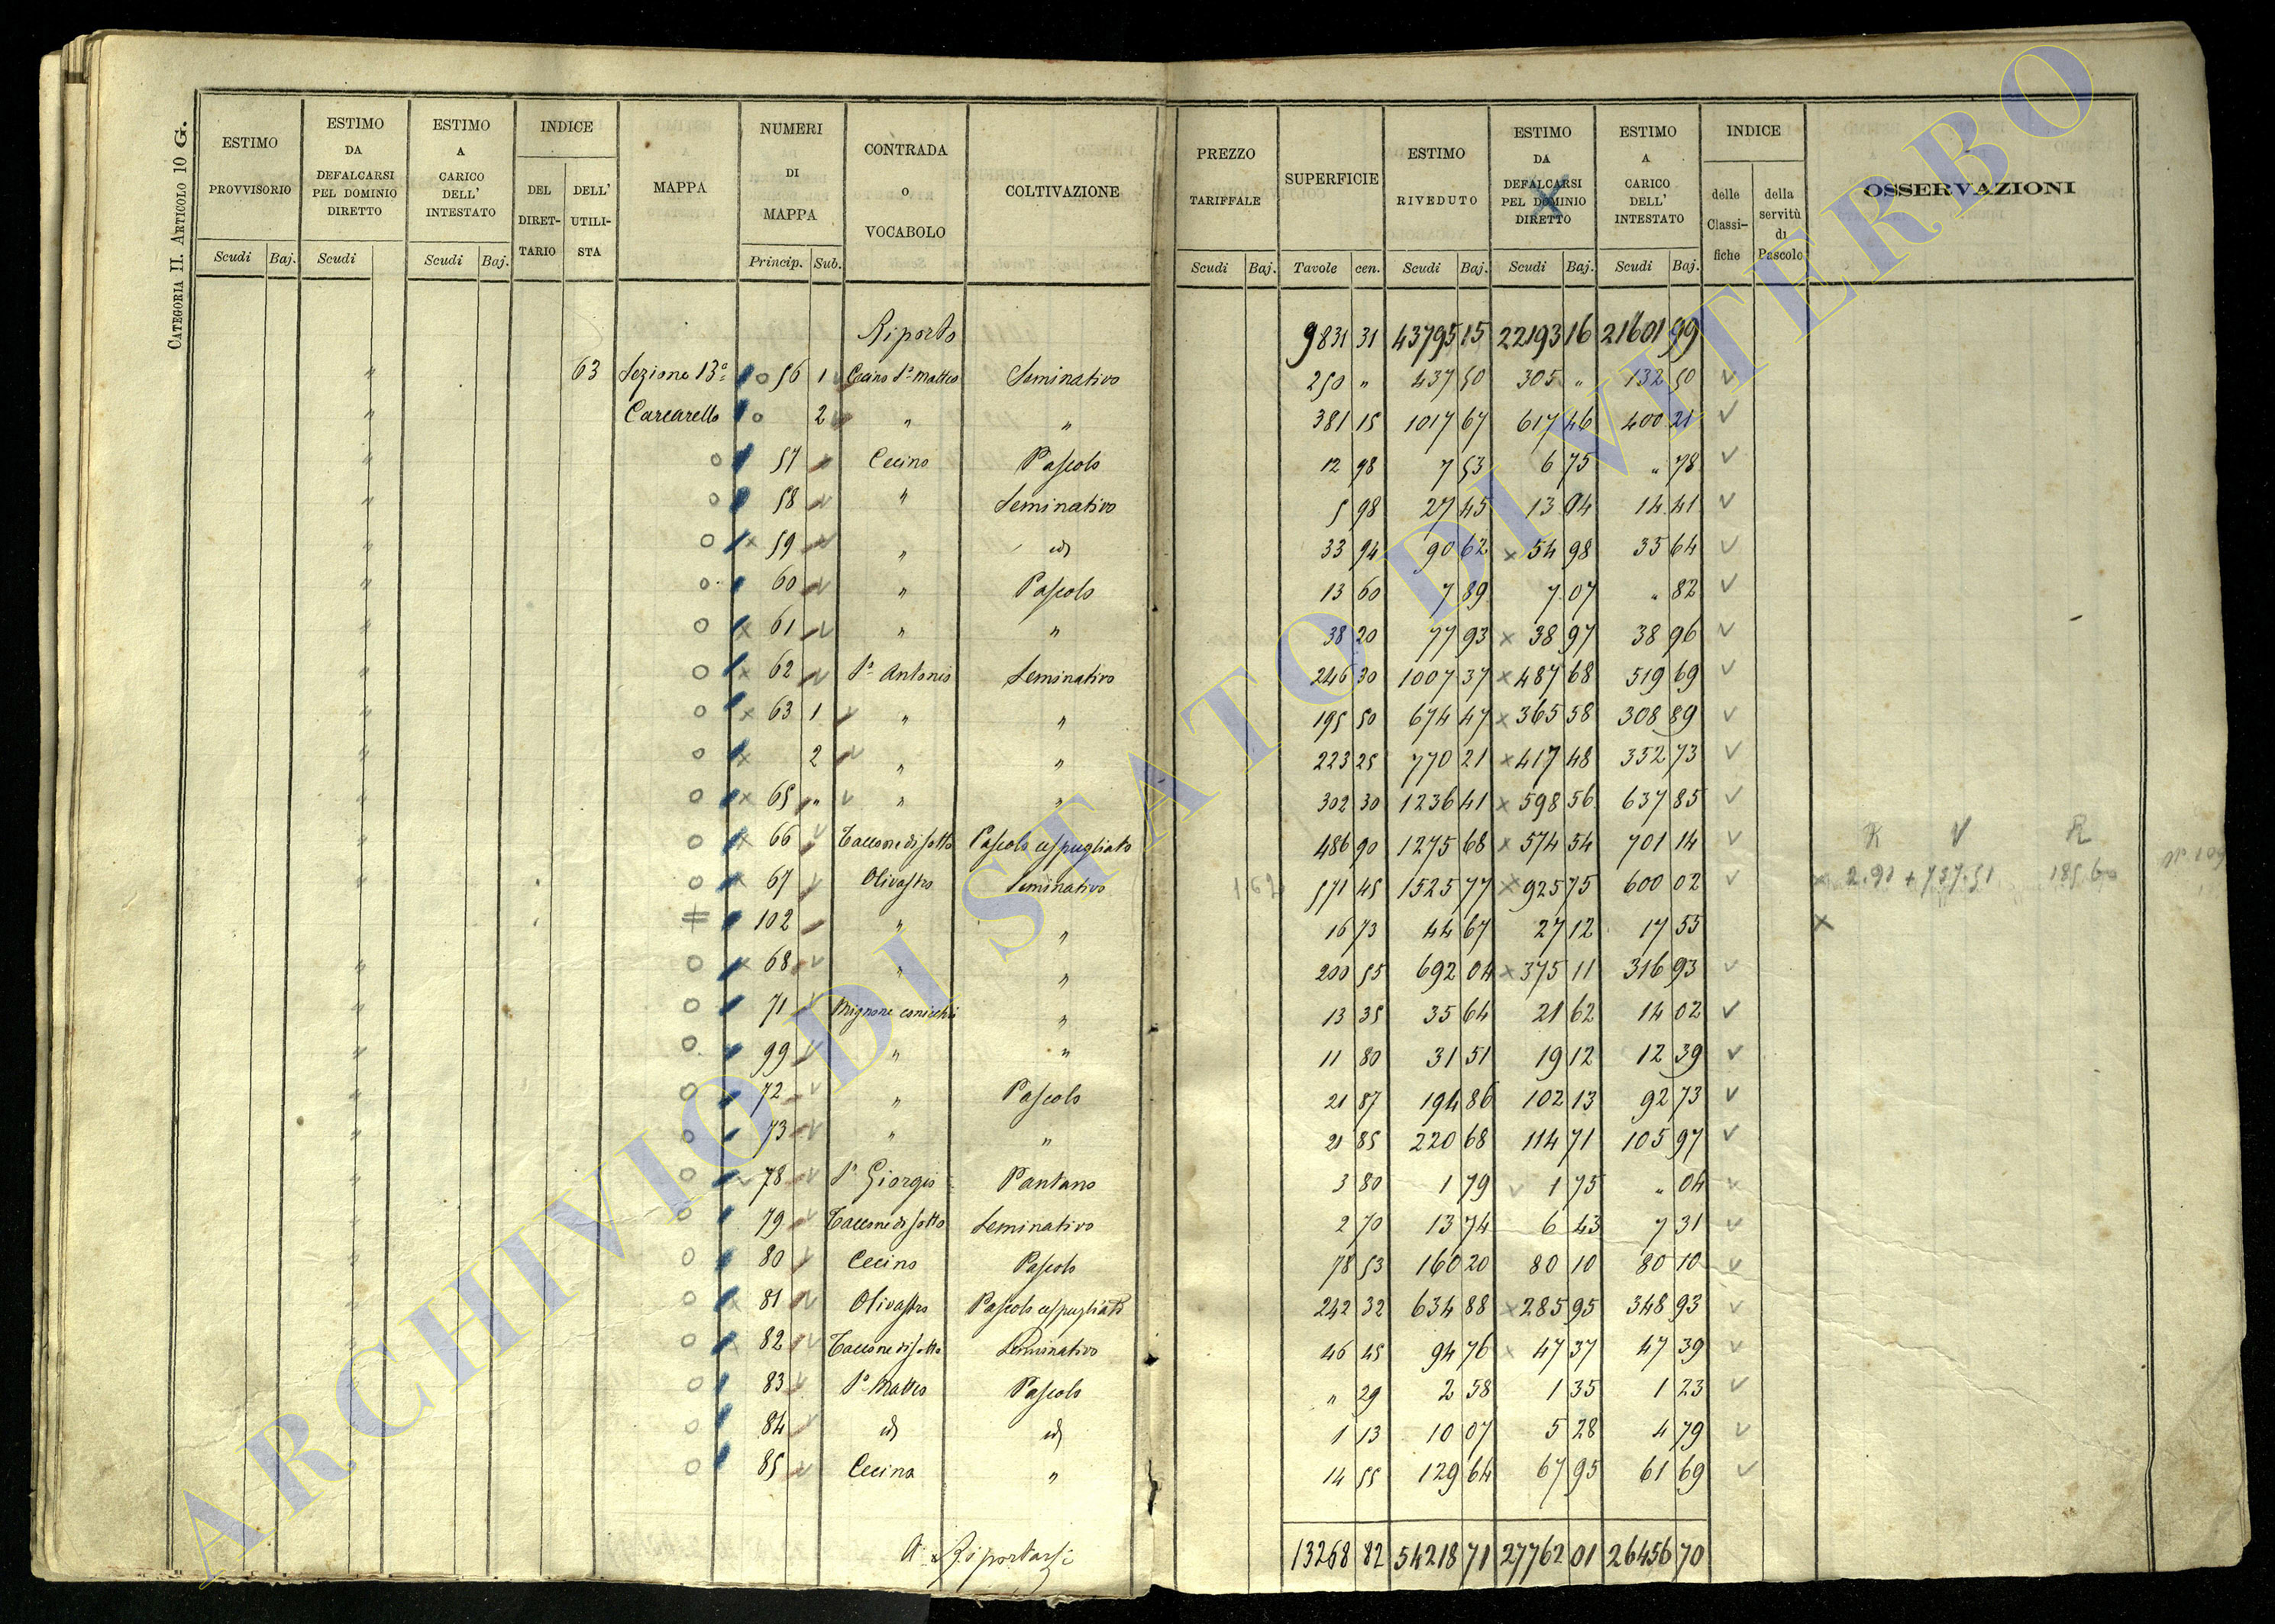 CATEGORIA II. ARTICOLO 10 G.
ESTIMO PROVVISORIO | ESTIMO DA DEFALCARSI PEL DOMINIO DIRETTO | ESTIMO A CARICO DELL' INTESTATO | INDICE DEL DIRETTARIO | DELL' UTILISTA | MAPPA | NUMERI DI MAPPA | CONTRADA O VOCABOLO | COLTIVAZIONE | PREZZO TARIFFALE | SUPERFICIE | ESTIMO RIVEDUTO | ESTIMO DA DEFALCARSI PEL DOMINIO DIRETTO | ESTIMO A CARICO DELL' INTESTATO | INDICE delle Classifiche | della servitù di Pascolo | OSSERVAZIONI
Scudi | Baj. | Scudi | Scudi | Baj. | Princip. | Sub. | Scudi | Baj. | Tavole | cen. | Scudi | Baj. | Scudi | Baj. | Scudi | Baj.
Riporto 9831 31 43795 15 22193 16 21601 99
" 63 Sezione 13a 56 1 Cecino Sn Matteo Seminativo 250 " 437 50 305 " 132 50
" Carcarello 2 " " 381 15 1017 67 617 46 400 21
" 57 Cecino Pascolo 12 98 7 53 6 75 " 78
" 58 " Seminativo 5 98 27 45 13 04 14 41
" 59 " id 33 94 90 62 54 98 35 64
" 60 " Pascolo 13 60 7 89 7 07 " 82
" 61 " " 38 20 77 93 38 97 38 96
" 62 Sn Antonio Seminativo 246 30 1007 37 487 68 519 69
" 63 1 " " 195 50 674 47 365 58 308 89
" 2 " " 223 25 770 21 417 48 352 73
" 65 " " " 302 30 1236 41 598 56 637 85
" 66 Taccone di sotto Pascolo cespugliato 486 90 1275 68 574 54 701 14 R V R
" 67 Olivastro Seminativo 571 45 1525 77 925 75 600 02
102 " " 16 73 44 67 27 12 17 55
" 68 " " 200 55 692 04 375 11 316 93
" 71 Mignone " 13 35 35 64 21 62 14 02
" 99 " " 11 80 31 51 19 12 12 39
" 72 " Pascolo 21 87 194 86 102 13 92 73
" 73 " " 21 85 220 68 114 71 105 97
" 78 Sn Giorgio Pantano 3 80 1 79 1 75 " 04
" 79 Taccone di sotto Seminativo 2 70 13 74 6 43 7 31
" 80 Cecino Pascolo 78 53 160 20 80 10 80 10
" 81 Olivastro Pascolo cespugliato 242 32 634 88 285 95 348 93
" 82 Taccone di sotto Seminativo 46 45 94 76 47 37 47 39
" 83 Sn Matteo Pascolo " 29 2 58 1 35 1 23
" 84 id id 1 13 10 07 5 28 4 79
" 85 Cecina " 14 55 129 64 67 95 61 69
A Riportarsi 13268 82 54218 71 27762 01 26456 70
ARCHIVIO DI STATO DI VITERBO